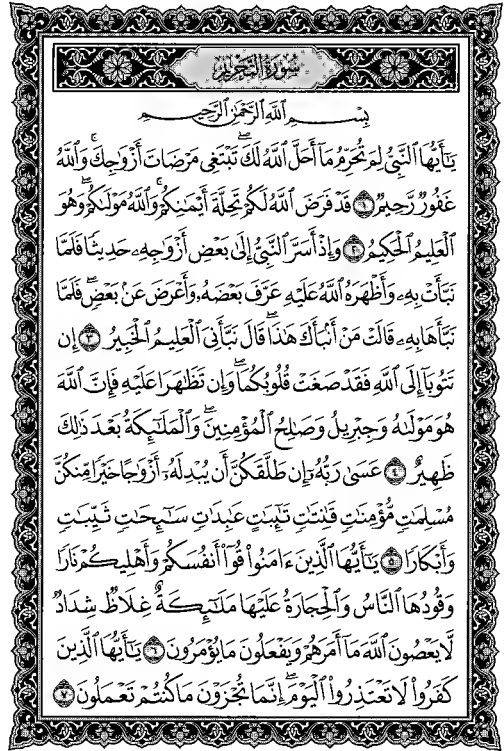 سُورَةُ التَّحْرِيمِ
بِسْمِ اللَّهِ الرَّحْمَٰنِ الرَّحِيمِ
يَٰٓأَيُّهَا ٱلنَّبِىُّ لِمَ تُحَرِّمُ مَآ أَحَلَّ ٱللَّهُ لَكَ ۖ تَبْتَغِى مَرْضَاتَ أَزْوَٰجِكَ ۚ وَٱللَّهُ
غَفُورٌ رَّحِيمٌ ١ قَدْ فَرَضَ ٱللَّهُ لَكُمْ تَحِلَّةَ أَيْمَٰنِكُمْ ۚ وَٱللَّهُ مَوْلَىٰكُمْ ۖ وَهُوَ
ٱلْعَلِيمُ ٱلْحَكِيمُ ٢ وَإِذْ أَسَرَّ ٱلنَّبِىُّ إِلَىٰ بَعْضِ أَزْوَٰجِهِۦ حَدِيثًا فَلَمَّا
نَبَّأَتْ بِهِۦ وَأَظْهَرَهُ ٱللَّهُ عَلَيْهِ عَرَّفَ بَعْضَهُۥ وَأَعْرَضَ عَنۢ بَعْضٍ ۖ فَلَمَّا
نَبَّأَهَا بِهِۦ قَالَتْ مَنْ أَنۢبَأَكَ هَٰذَا ۖ قَالَ نَبَّأَنِىَ ٱلْعَلِيمُ ٱلْخَبِيرُ ٣ إِن
تَتُوبَآ إِلَى ٱللَّهِ فَقَدْ صَغَتْ قُلُوبُكُمَا ۖ وَإِن تَظَٰهَرَا عَلَيْهِ فَإِنَّ ٱللَّهَ
هُوَ مَوْلَىٰهُ وَجِبْرِيلُ وَصَٰلِحُ ٱلْمُؤْمِنِينَ ۖ وَٱلْمَلَٰٓئِكَةُ بَعْدَ ذَٰلِكَ
ظَهِيرٌ ٤ عَسَىٰ رَبُّهُۥٓ إِن طَلَّقَكُنَّ أَن يُبْدِلَهُۥٓ أَزْوَٰجًا خَيْرًا مِّنكُنَّ
مُسْلِمَٰتٍ مُّؤْمِنَٰتٍ قَٰنِتَٰتٍ تَٰٓئِبَٰتٍ عَٰبِدَٰتٍ سَٰٓئِحَٰتٍ ثَيِّبَٰتٍ
وَأَبْكَارًا ٥ يَٰٓأَيُّهَا ٱلَّذِينَ ءَامَنُوا۟ قُوٓا۟ أَنفُسَكُمْ وَأَهْلِيكُمْ نَارًا
وَقُودُهَا ٱلنَّاسُ وَٱلْحِجَارَةُ عَلَيْهَا مَلَٰٓئِكَةٌ غِلَاظٌ شِدَادٌ
لَّا يَعْصُونَ ٱللَّهَ مَآ أَمَرَهُمْ وَيَفْعَلُونَ مَا يُؤْمَرُونَ ٦ يَٰٓأَيُّهَا ٱلَّذِينَ
كَفَرُوا۟ لَا تَعْتَذِرُوا۟ ٱلْيَوْمَ ۖ إِنَّمَا تُجْزَوْنَ مَا كُنتُمْ تَعْمَلُونَ ٧